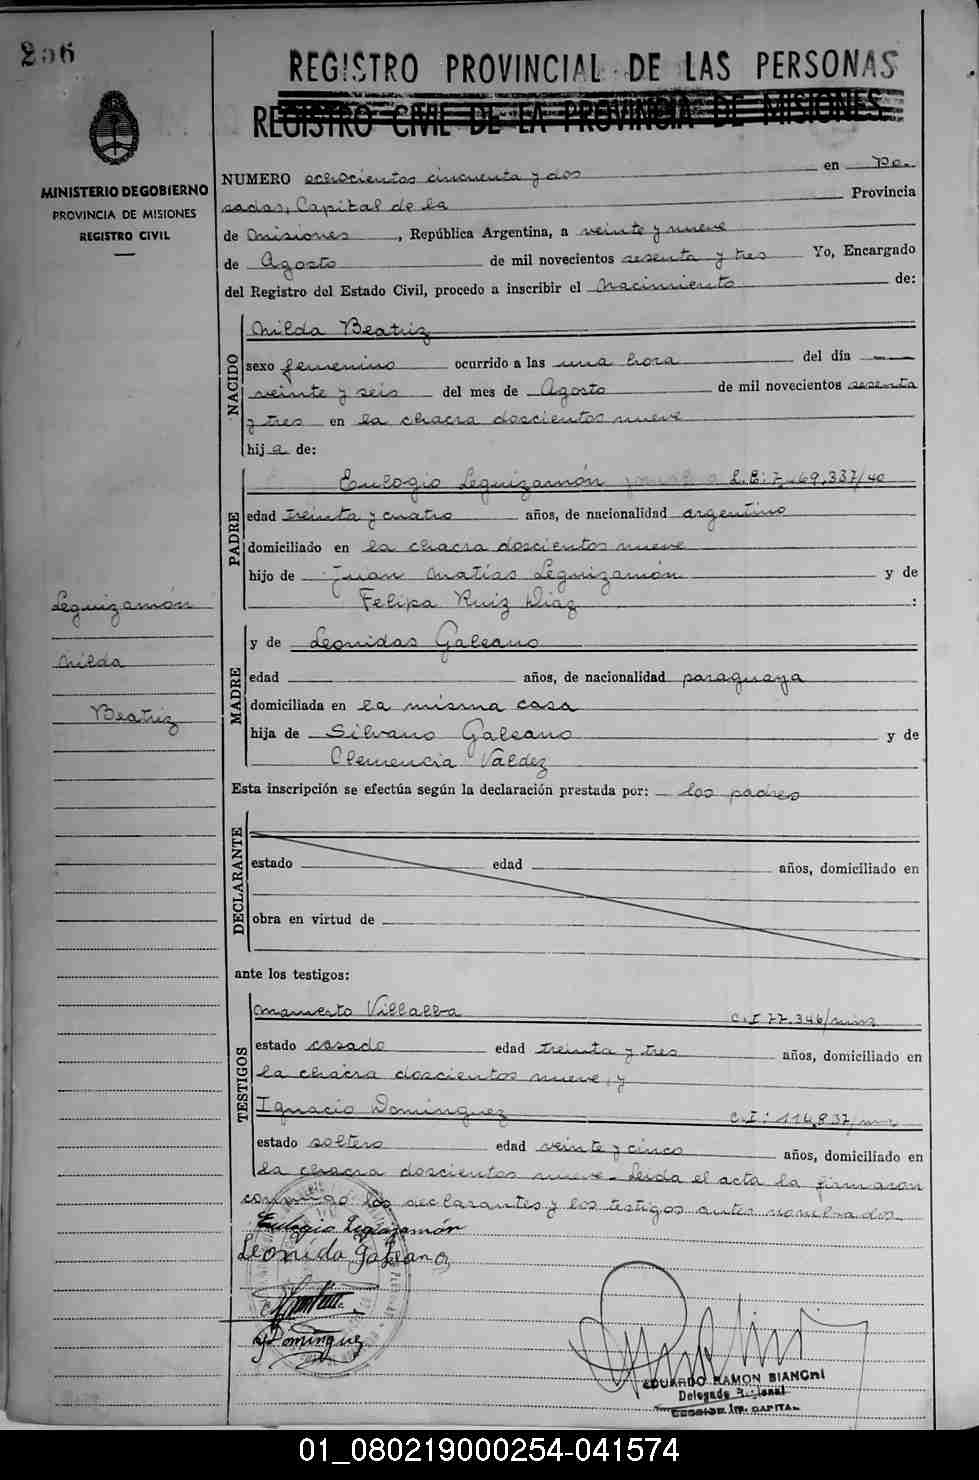 256
REGISTRO PROVINCIAL DE LAS PERSONAS
REGISTRO CIVIL DE LA PROVINCIA DE MISIONES
MINISTERIO DE GOBIERNO
PROVINCIA DE MISIONES
REGISTRO CIVIL
NUMERO ochocientos cincuenta y dos en Po-
sadas, Capital de la Provincia
de Misiones, República Argentina, a veinte y nueve
de Agosto de mil novecientos sesenta y tres Yo, Encargado
del Registro del Estado Civil, procedo a inscribir el Nacimiento de:
NACIDO
Nilda Beatriz
sexo femenino ocurrido a las una hora del día
veinte y seis del mes de Agosto de mil novecientos sesenta
y tres en la chacra doscientos nueve
hija de:
PADRE
Eulogio Leguizamón L.E: 7. 69.337/40
edad treinta y cuatro años, de nacionalidad argentino
domiciliado en la chacra doscientos nueve
hijo de Juan Matías Leguizamón y de
Felipa Ruiz Diaz :
Leguizamón
Nilda
Beatriz
MADRE
y de Leonidas Galeano
edad años, de nacionalidad paraguaya
domiciliada en la misma casa
hija de Silvano Galeano y de
Clemencia Valdez
Esta inscripción se efectúa según la declaración prestada por: los padres
DECLARANTE
estado edad años, domiciliado en
obra en virtud de
ante los testigos:
TESTIGOS
Mamerto Villalba C.I 77.346/mnes
estado casado edad treinta y tres años, domiciliado en
la chacra doscientos nueve, y
Ignacio Dominguez C.I: 114.837/mnes
estado soltero edad veinte y cinco años, domiciliado en
la chacra doscientos nueve. Leida el acta la firmaron
conmigo los declarantes y los testigos antes nombrados.
Eulogio Leguizamón
Leonida Galeano
Dominguez
EDUARDO RAMON BIANCHI
Delegado Regional
CAPITAL
01_080219000254-041574